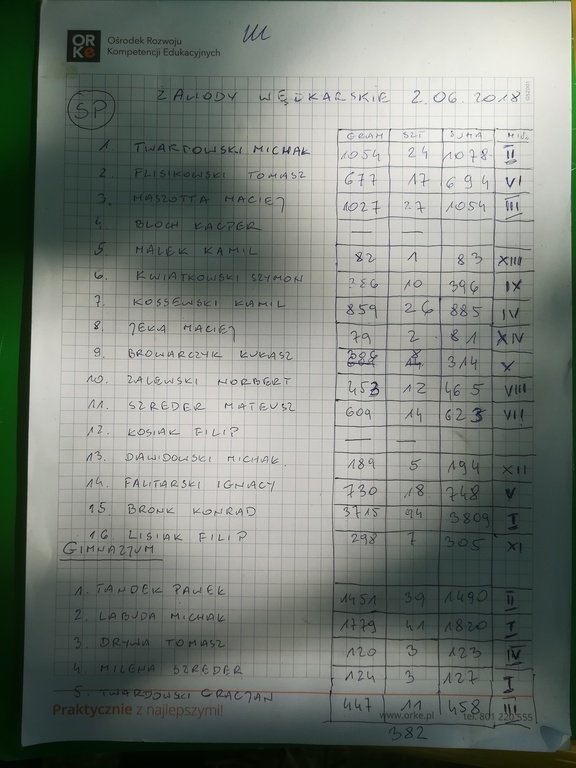 ORKe Ośrodek Rozwoju
Kompetencji Edukacyjnych
III
SP
ZAWODY WĘDKARSKIE 2.06.2018
GRAM SZT SUMA
1 TWARDOWSKI MICHAŁ 1054 24 1078 II
2. PLISIKOWSKI TOMASZ 677 17 694 VI
3. MASZOTTA MACIEJ 1027 27 1054 III
4 BLOCH KACPER — —
5. MALEK KAMIL 82 1 83 XIII
6. KWIATKOWSKI SZYMON 386 10 396 IX
7. KOSSEWSKI KAMIL 859 26 885 IV
8. JEKA MACIEJ 79 2 81 XIV
9. BROWARCZYK ŁUKASZ 314 X
10. ZALEWSKI NORBERT 453 12 465 VIII
11. SZREDER MATEUSZ 609 14 623 VII
12. KOSIAK FILIP — —
13. DAWIDOWSKI MICHAŁ 189 5 194 XII
14. FALITARSKI IGNACY 730 18 748 V
15 BRONK KONRAD 3715 94 3809 I
16 LISIAK FILIP 298 7 305 XI
GIMNAZJUM
1. TANDEK PAWEŁ 1451 39 1490 II
2. LABUDA MICHAŁ 1779 41 1820 I
3 DRYWA TOMASZ 120 3 123 IV
4 MILENA SZREDER 124 3 127 I
5. TWARDOWSKI GRACJAN 447 11 458 III
Praktycznie z najlepszymi! www.orke.pl tel. 801 220 555
382